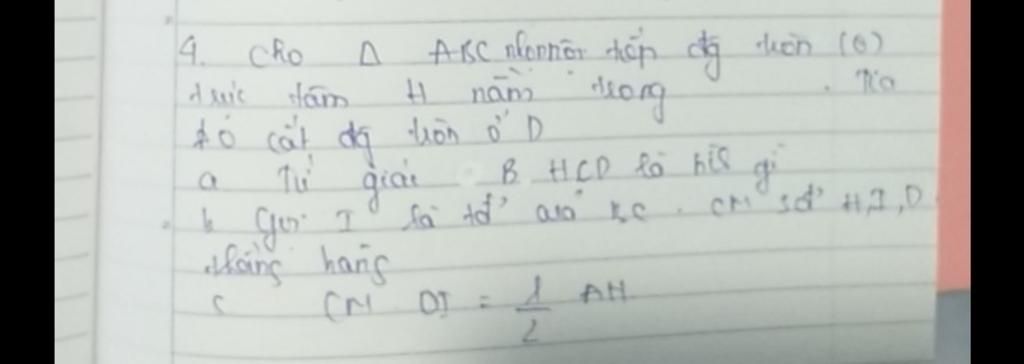 4. Cho Δ ABC nhọn nội tiếp đg tròn (O)
trực tâm H nằm trong . Tia
AO cắt đg tròn ở D
a Tứ giác BHCD là hình gì
b Gọi I là tđ' của BC . CM 3đ' H,I,D
thẳng hàng
c CM OI = 1/2 AH